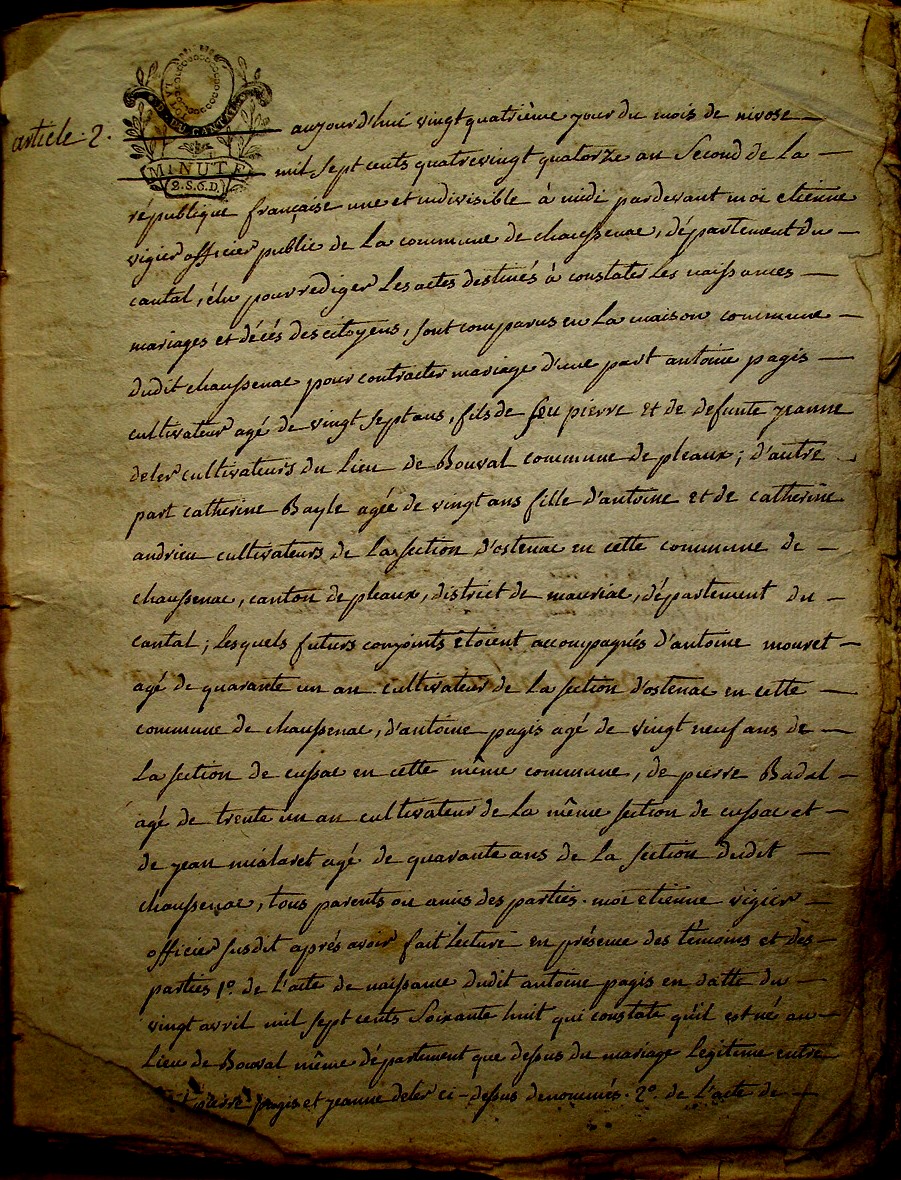 article 2.
D. DU CANTAL
MINUTE
2.S.6.D.
aujourd'hui vingt quatrième jour du mois de nivose
mil sept cents quatrevingt quatorze an Second de La
république française une et indivisible à midi pardevant moi etienne
vigier officier public de La commune de chaussenac, département du
cantal, élu pour rediger Les actes destinés à constater Les naissances
mariages et décés des citoyens, sont comparus en La maison commune
dudit chaussenac pour contracter mariage d'une part antoine pagis
cultivateur agé de vingt sept ans, fils de feu pierre et de defunte jeanne
deler cultivateurs du Lieu de Bouval commune de pleaux; d'autre
part catherine Bayle agée de vingt ans fille d'antoine et de catherine
andrieu cultivateurs de La section d'ostenac en cette commune de
chaussenac, canton de pleaux, district de mauriac, département du
cantal; Lesquels futurs conjoints etoient accompagnés d'antoine mouret
agé de quarante un an cultivateur de La section d'ostenac en cette
commune de chaussenac, d'antoine pagis agé de vingt neuf ans de
La section de cussac en cette même commune, de pierre Badal
agé de trente un an cultivateur de La même section de cussac et
de jean mialaret agé de quarante ans de La section dudit
chaussenac, tous parents ou amis des parties. moi etienne vigier
officier susdit aprés avoir fait Lecture en présence des témoins et des
parties 1º. de L'acte de naissance dudit antoine pagis en datte du
vingt avril mil sept cents Soixante huit qui constate qu'il est né au
Lieu de Bouval même département que dessus du mariage Legitime entre
pierre pagis et jeanne deler ci-dessus denommés. 2º. de L'acte de